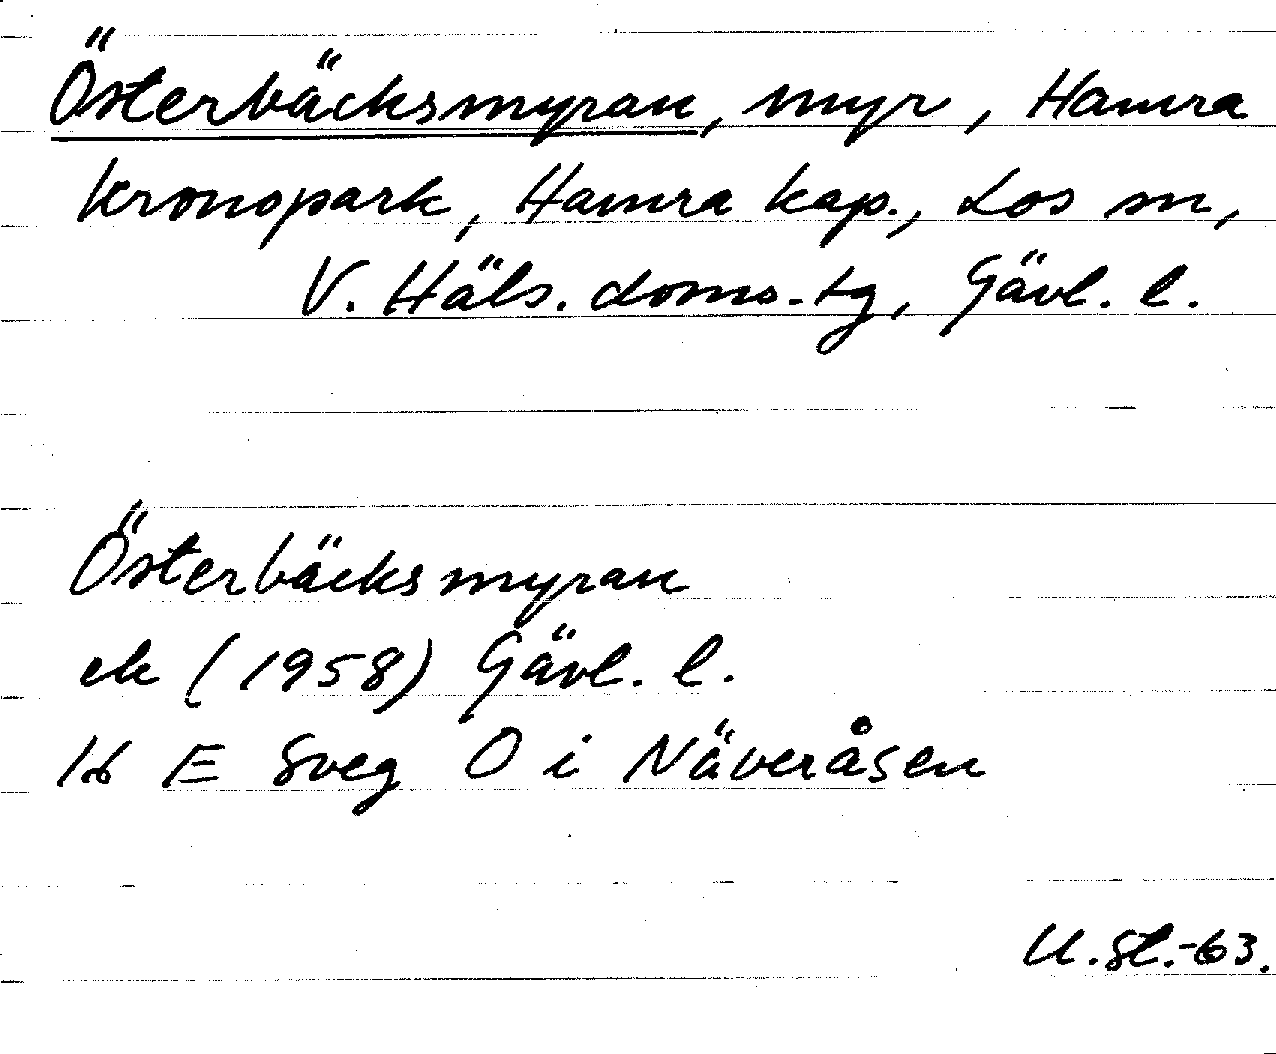 Österbäcksmyran, myr, Hamra
kronopark, Hamra kap., Los sn,
V. Häls. doms.tg, Gävl. l.
Österbäcksmyran
ek (1958) Gävl. l.
16 E Sveg O i Näveråsen
U.St.-63.